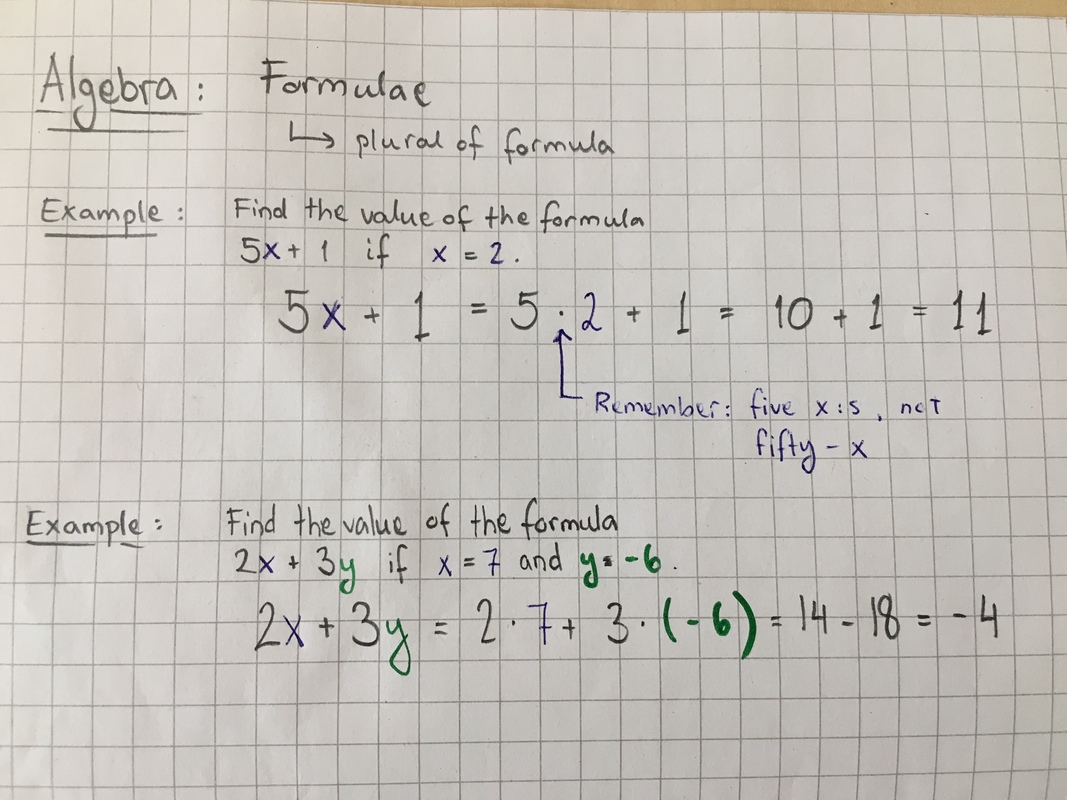 Algebra: Formulae
↳ plural of formula
Example: Find the value of the formula
5x + 1 if x = 2.
5x + 1 = 5 · 2 + 1 = 10 + 1 = 11
Remember: five x:s, not
fifty-x
Example: Find the value of the formula
2x + 3y if x = 7 and y = -6.
2x + 3y = 2 · 7 + 3 · (-6) = 14 - 18 = -4